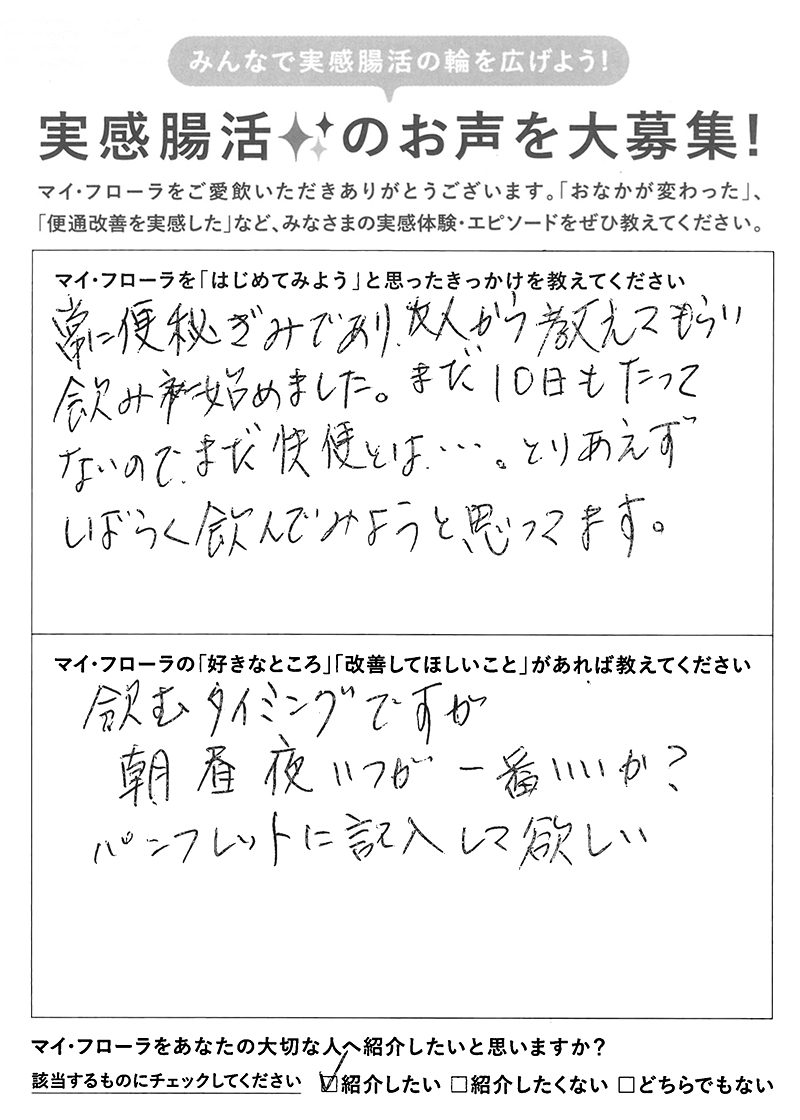 みんなで実感腸活の輪を広げよう!
実感腸活のお声を大募集!
マイ・フローラをご愛飲いただきありがとうございます。「おなかが変わった」、
「便通改善を実感した」など、みなさまの実感体験・エピソードをぜひ教えてください。
マイ・フローラを「はじめてみよう」と思ったきっかけを教えてください
常に便秘ぎみであり、友人から教えてもらい
飲み始めました。まだ10日もたって
ないので、まだ快便とは…。とりあえず
しばらく飲んでみようと思ってます。
マイ・フローラの「好きなところ」「改善してほしいこと」があれば教えてください
飲むタイミングですが
朝昼夜いつが一番いいか?
パンフレットに記入して欲しい
マイ・フローラをあなたの大切な人へ紹介したいと思いますか?
該当するものにチェックしてください ☑紹介したい □紹介したくない □どちらでもない